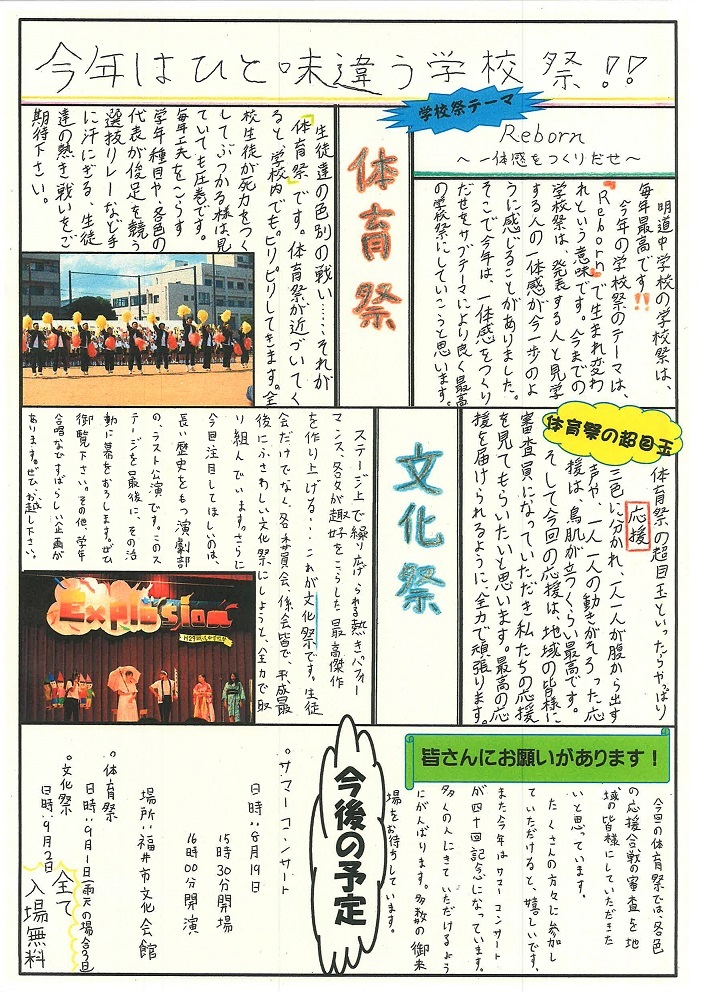 今年はひと味違う学校祭!!
学校祭テーマ
Reborn
～一体感をつくりだせ～
明道中学校の学校祭は、
毎年最高です!!
今年の学校祭のテーマは、
『Reborn』で生まれ変わ
れという意味です。今までの
学校祭は、発表する人と見学
する人の一体感が今一歩のよ
うに感じることがありました。
そこで今年は、一体感をつくり
だせをサブテーマにより良く最高
の学校祭にしていこうと思います。
体育祭
生徒達の色別の戦い……それが
『体育祭』です。体育祭が近づいてく
ると、学校内でも。ピリピリしてきます。全
校生徒が死力をつく
してぶつかる様は見
ていても圧巻です。
毎年工夫をこらす
学年種目や、各色の
代表が俊足を競う
選抜リレーなど手
に汗にぎる、生徒
達の熱き戦いをご
期待下さい。
体育祭の超目玉
体育祭の超目玉といったらやっぱり
応援
三色に分かれ、一人一人が腹から出す
声や、一人一人の動きがそろった応
援は、鳥肌が立つくらい最高です。
そして今回の応援は、地域の皆様に
審査員になっていただき私たちの応援
を見てもらいたいと思います。最高の応
援を届けられるように、全力で頑張ります。
文化祭
ステージ上で繰り広げられる熱きパフォー
マンス、各々が趣好をこらした最高傑作
を作り上げる…これが文化祭です。生徒
会だけでなく、各委員会、係会皆で、平成最
後にふさわしい文化祭にしようと、全力で取
り組んでいます。さらに
今回注目してほしいのは、
長い歴史をもつ演劇部
の、ラスト公演です。このス
テージを最後に、その活
動に幕をおろします。ぜひ
御覧下さい。その他、学年
合唱などすばらしい企画が
あります。ぜひ、お越し下さい。
Explosion
皆さんにお願いがあります！
今回の体育祭では、各色
の応援合戦の審査を地
域の皆様にしていただきた
いと思っています。
たくさんの方々に参加し
ていただけると、嬉しいです。
また今年はサマーコンサート
が四十回記念になっています。
多くの人にきていただけるよう
にがんばります。多数の御来
場をお待ちしています。
今後の予定
○サマーコンサート
日時：8月19日
15時30分開場
16時00分開演
場所：福井市文化会館
○体育祭
日時：9月1日(雨天の場合3日)
○文化祭
日時：9月2日
全て
入場無料